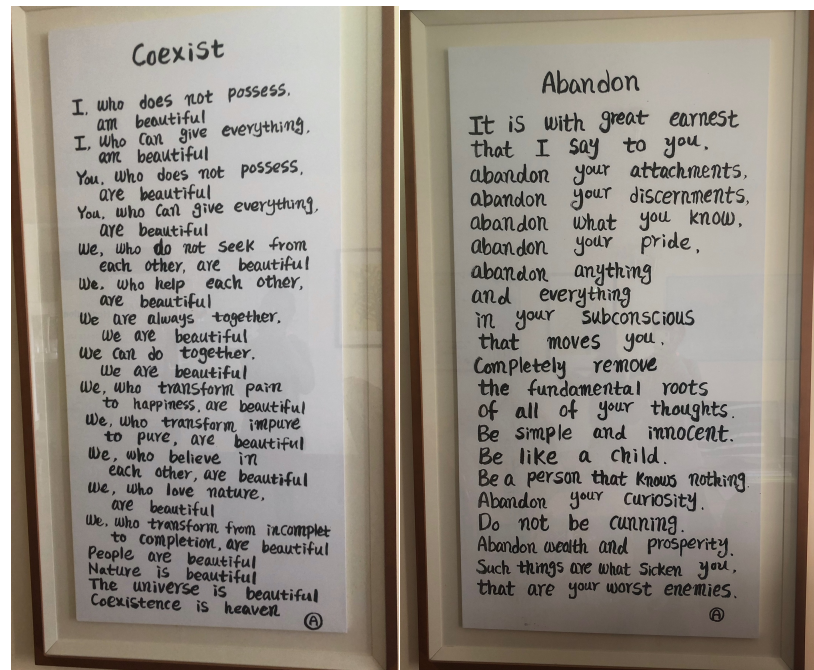 Coexist
I, who does not possess,
am beautiful
I, who can give everything,
am beautiful
You, who does not possess,
are beautiful
You, who can give everything,
are beautiful
We, who do not seek from
each other, are beautiful
We, who help each other,
are beautiful
We are always together.
We are beautiful
We can do together.
We are beautiful
We, who transform pain
to happiness, are beautiful
We, who transform impure
to pure, are beautiful
We, who believe in
each other, are beautiful
We, who love nature,
are beautiful
We, who transform from incomplet
to completion, are beautiful
People are beautiful
Nature is beautiful
The universe is beautiful
Coexistence is heaven
A
Abandon
It is with great earnest
that I say to you,
abandon your attachments,
abandon your discernments,
abandon what you know,
abandon your pride,
abandon anything
and everything
in your subconscious
that moves you.
Completely remove
the fundamental roots
of all of your thoughts.
Be simple and innocent.
Be like a child.
Be a person that knows nothing.
Abandon your curiosity.
Do not be cunning.
Abandon wealth and prosperity.
Such things are what sicken you,
that are your worst enemies.
A